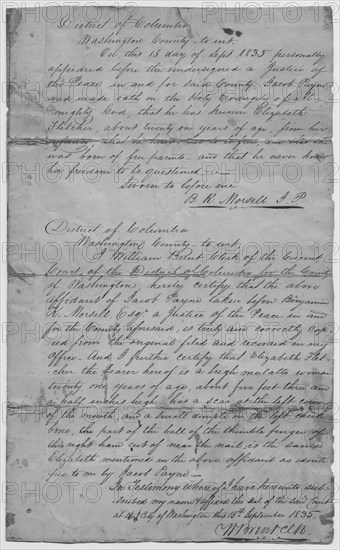 District of Columbia
Washington County to wit.
On this 15 day of Sept 1835 personally
appeared before the undersigned a Justice of
the Peace in and for said County Jacob Payne
and made oath on the Holy Evangely of Al
mighty God, that he has known Elizabeth
Fletcher, about twenty one years of age, from her
infancy that he
was born of free parents and that he never knew
her freedom to be questioned
Sworn to before me
B. K. Morsell J. P
District of Columbia
Washington County to wit,
I William Brent Clerk of the Circuit
Court of the District of Columbia for the County
of Washington, hereby certify that the above
affidavit of Jacob Payne taken before Benjamin
K. Morsell Esqr a Justice of the Peace in and
for the County aforesaid, is truly and correctly cop
ied from the original filed and recorded in my
Office. And I further certify that Elizabeth Flet
cher the bearer hereof is a bright mulatto woman
twenty one years of age, about five feet three and
a half inches high has a scar at the left corner
of the mouth and a small dimple on the left cheek
the part of the ball of the finger of
right hand cut of near the nail is the same
Elizabeth mentioned in the above affidavit as identi
fied to me by Jacob Payne
In Testimony whereof I have hereunto sub
scribed my name & affixed the seal of the said Court
at the City of Washington this 15th September 1835.
W Brent Clk